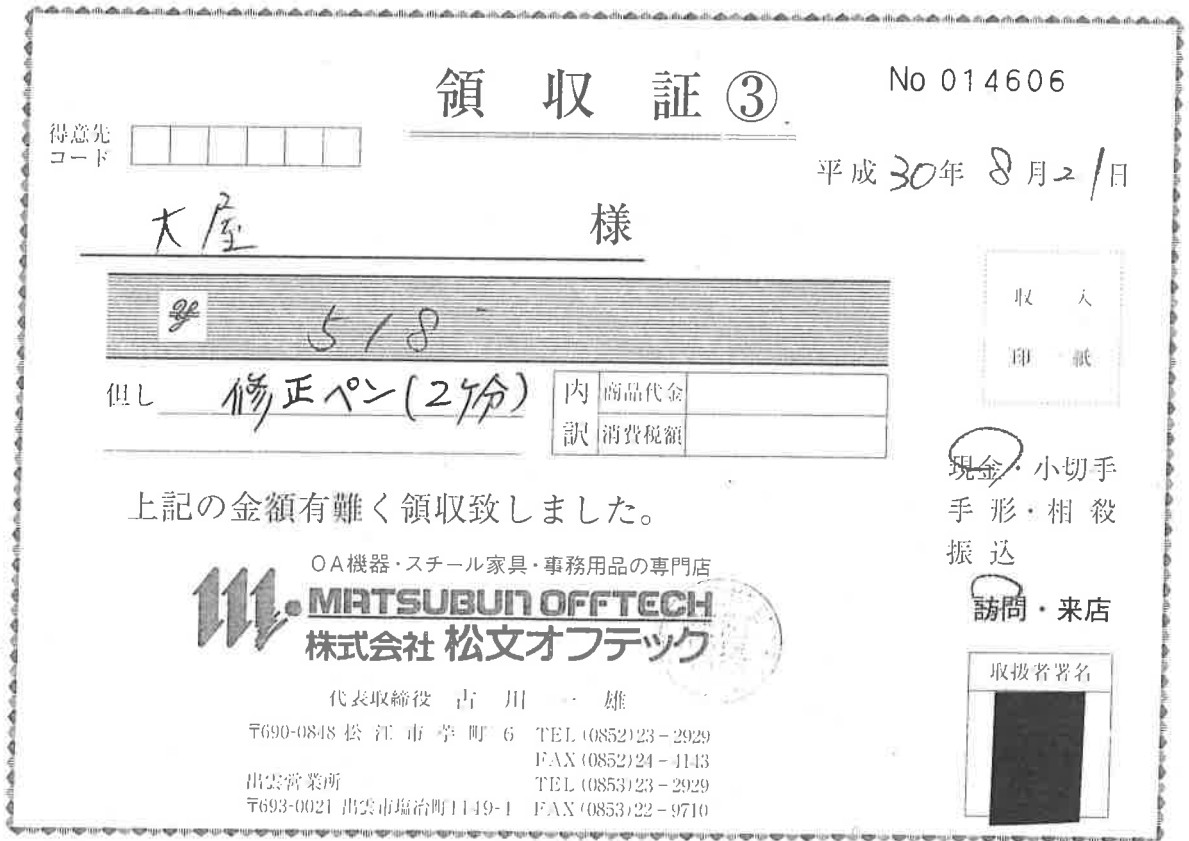 領収証③
No 014606
得意先
コード
平成30年8月21日
大屋 様
¥ 518-
収入
印紙
但し 修正ペン(2ケ分)
内訳
商品代金
消費税額
現金・小切手
手形・相殺
振込
上記の金額有難く領収致しました。
訪問・来店
OA機器・スチール家具・事務用品の専門店
m. MATSUBUN OFFTECH
株式会社 松文オフテック
取扱者署名
代表取締役 古川一雄
〒690-0848 松江市苧町6 TEL (0852)23-2929
FAX (0852)24-4143
出雲営業所 TEL (0853)23-2929
〒693-0021 出雲市塩冶町1149-1 FAX (0853)22-9710